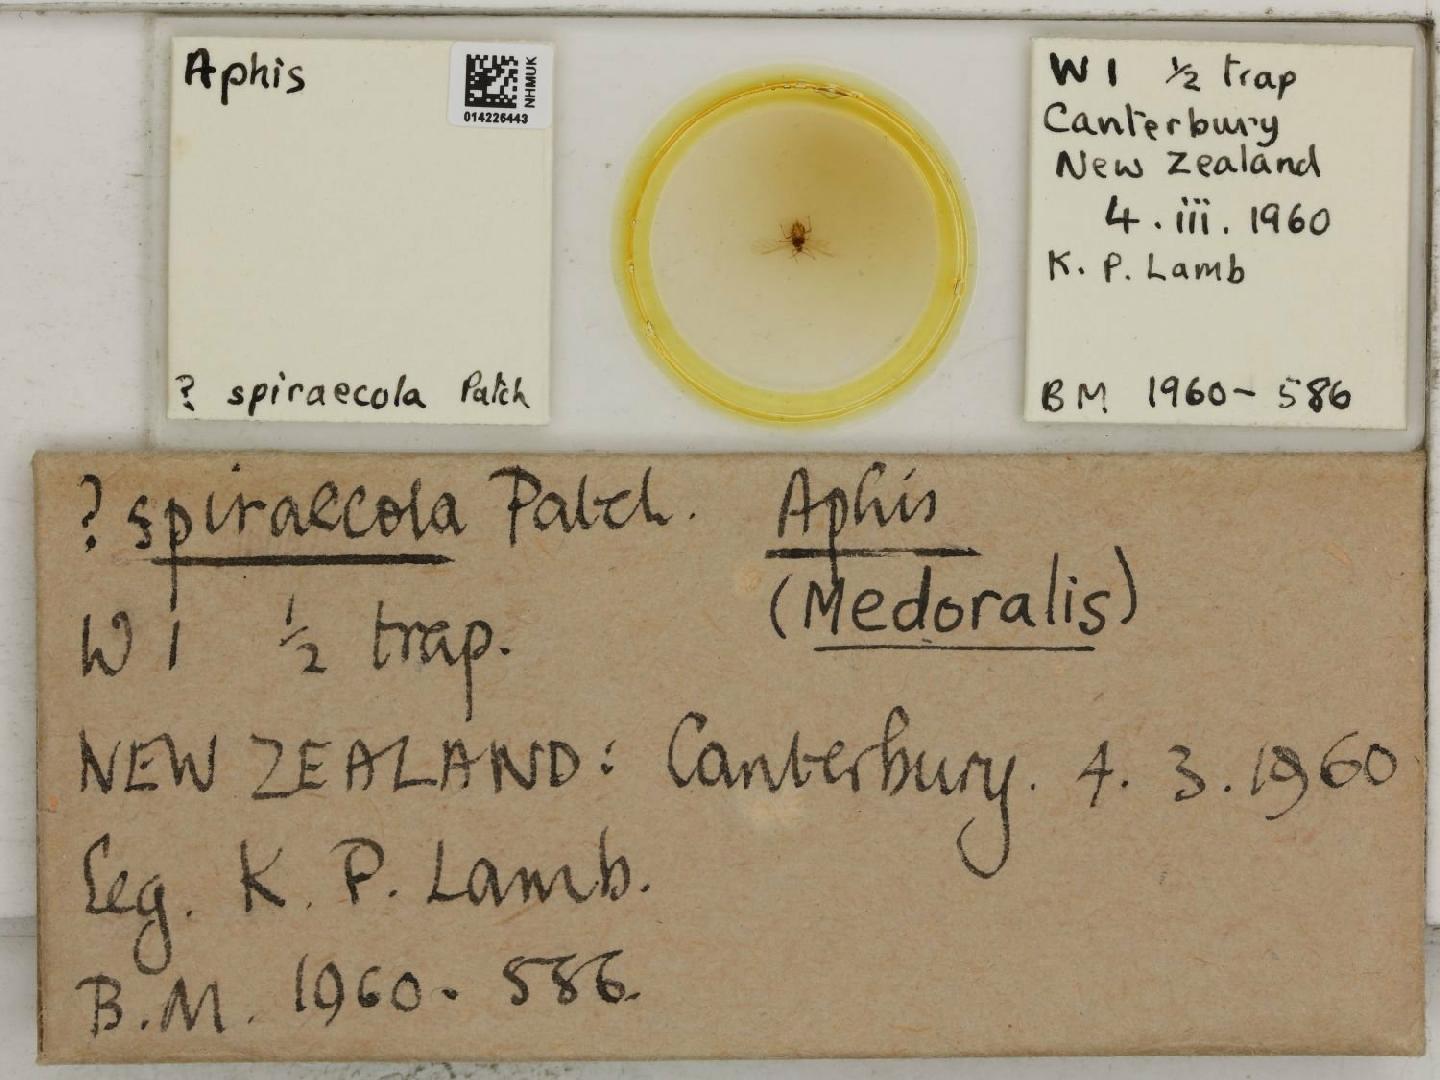 Aphis
NHMUK
014226443
? spiraecola Patch
W 1 ½ trap
Canterbury
New Zealand
4 . iii . 1960
K. P. Lamb
BM 1960 - 586
? spiraecola Patch. Aphis
(Medoralis)
W 1 ½ trap.
NEW ZEALAND: Canterbury. 4. 3. 1960
Leg. K. P. Lamb.
B.M. 1960 - 586.